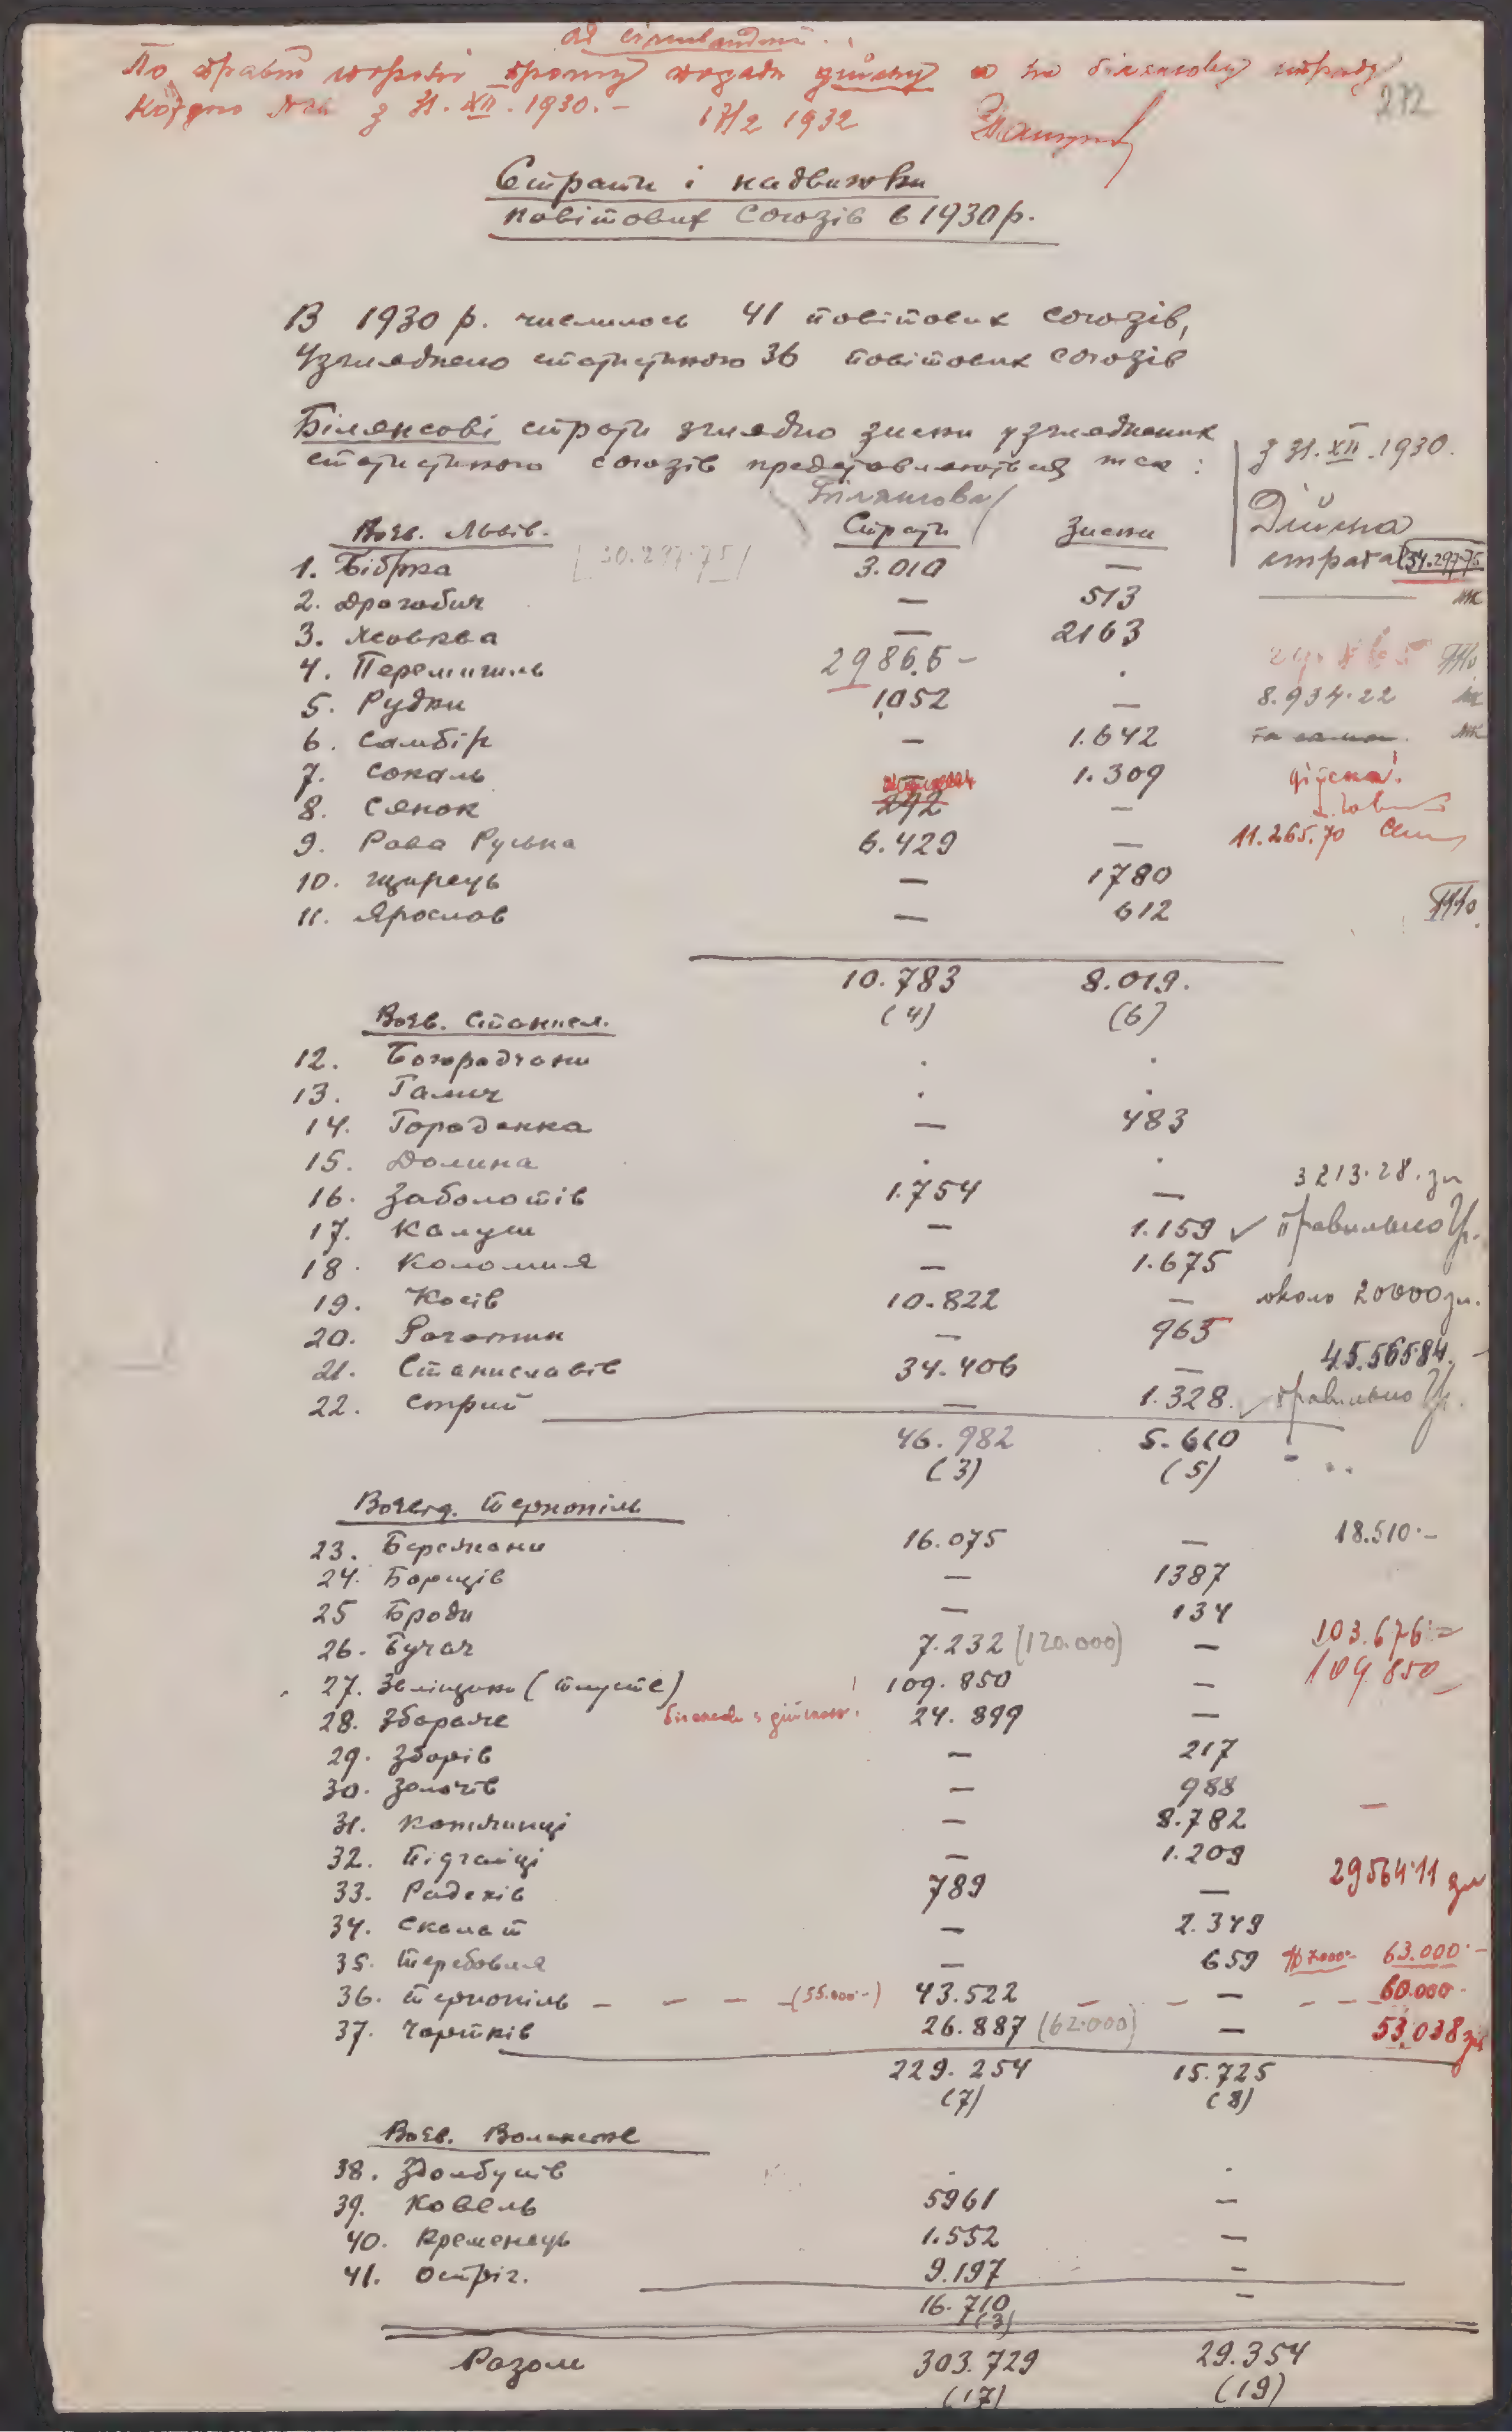 ad circulandum.
По правій стороні прошу подати дійсну а не білянсову страту
з 31.XII.1930.–
17/2 1932
272
Страти і надвижки
повітових Союзів в 1930 р.
В 1930 р. числилось 41 повітових союзів,
Узгляднено статистикою 36 повітових союзів
Білянсові страти зглядно зиски узгляднених
статистикою союзів представляються так:
з 31.XII.1930.
Білянсова
Воєв. Львів. Страти Зиски Дійсна
страта 34.297·75
[30.297·75]
1. Бібрка 3.010 —
2. Дрогобич — 513
3. Жовква — 2163
4. Перемишль 29865–
5. Рудки 1.052 — 8.934·22
6. Самбір — 1.642 та сама
7. Сокаль — 1.309 дійсна!
8. Сянок 292 —
9. Рава Руська 6.429 — 11.265.70
10. Щирець — 1780
11. Ярослав — 612
10.783 8.019.
(4) (6)
Воєв. Станисл.
12. Богородчани . .
13. Галич . .
14. Городенка — 483
15. Долина . .
16. Заболотів 1.754 — 3213·28. зл
17. Калуш — 1.159 ✓ правильно
18. Коломия — 1.675
19. Косів 10.822 — около 20000 зл.
20. Рогатин — 965
21. Станиславів 34.406 — 45.565·84.
22. Стрий — 1.328. ✓ правильно
46.982 5.610
(3) (5)
Воєвд. Тернопіль
23. Бережани 16.075 — 18.510·–
24. Борщів — 1387
25 Броди — 134
26. Бучач 7.232 (120.000) — 103.676·=
27. Заліщики (Товсте) 109.850 — 109.850
28. Збараж 24.899 —
29. Зборів — 217
30. Золочів — 988
31. Копичинці — 8.782 —
32. Підгайці — 1.209
33. Радехів 789 — 29564·11 зл
34. Скалат — 2.349
35. Теребовля — 659 63.000·–
36. Тернопіль – – – – (55.000·–) 43.522 — 60.000·
37. Чортків 26.887 (62.000) — 53.038 зл
229.254 15.725
(7) (8)
Воєв. Волинське
38. Здолбунів . .
39. Ковель 5961 —
40. Кременець 1.552 —
41. Остріг. 9.197 —
16.710 —
(3)
Разом 303.729 29.354
(17) (19)